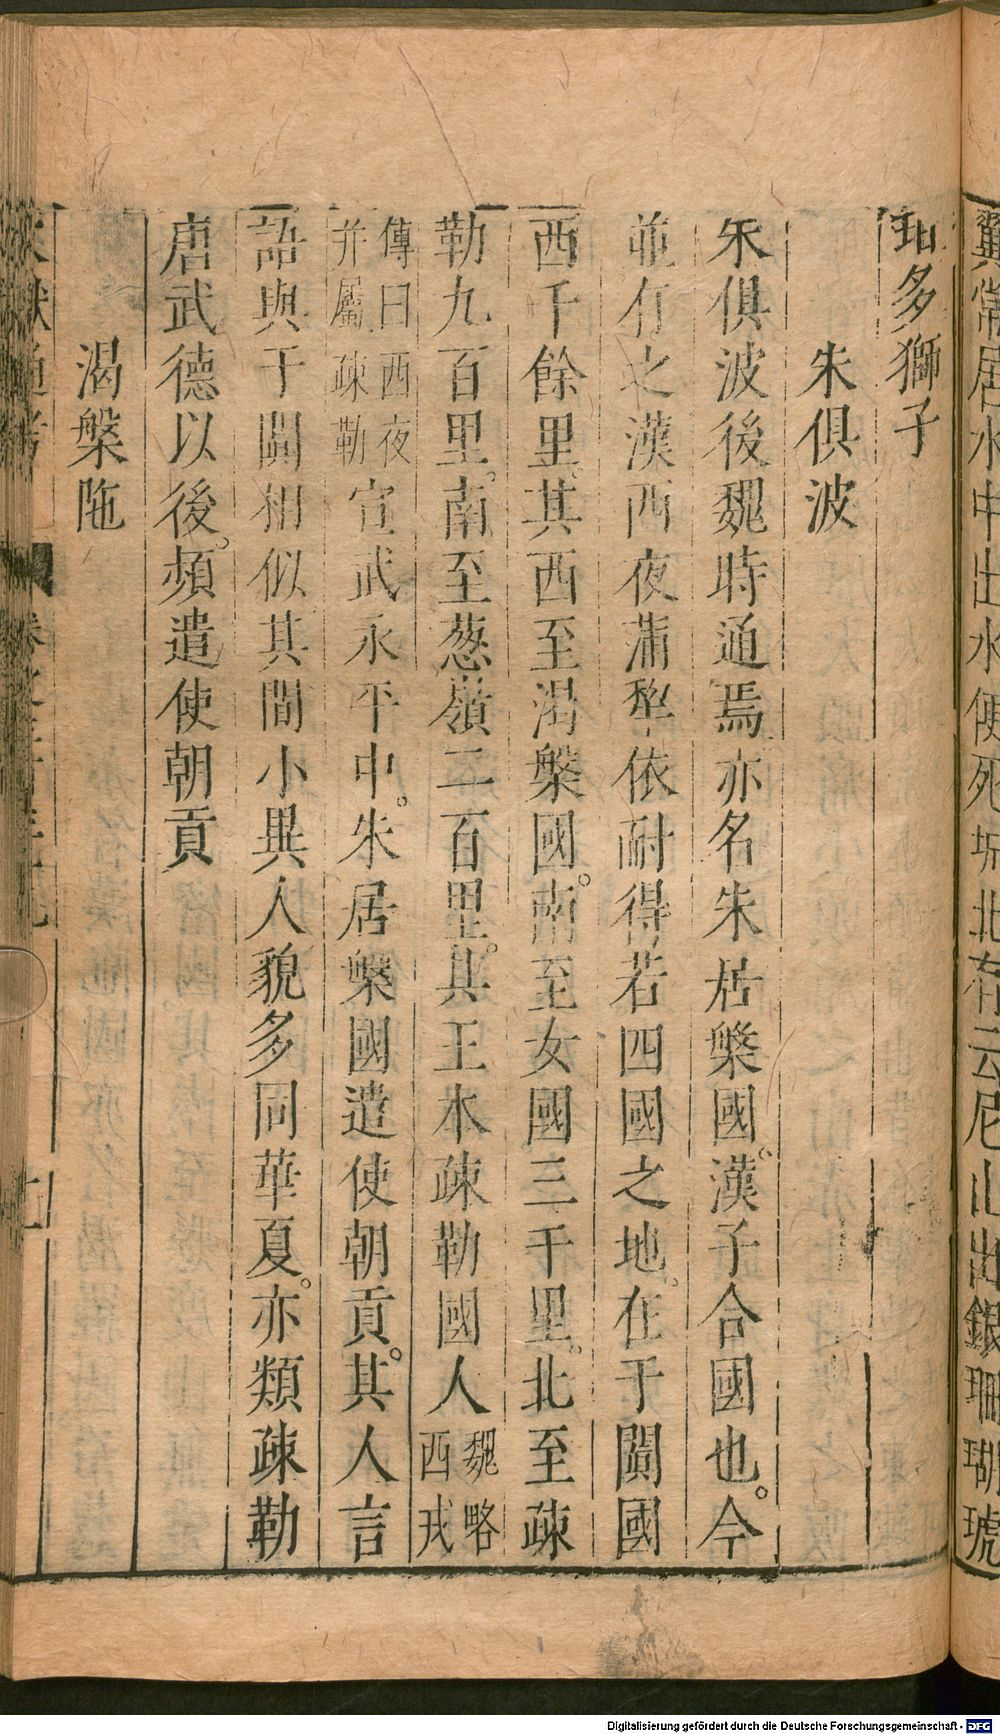 翼常居水中出水便死城北有云尼山出銀珊瑚琥
珀多獅子
朱俱波
朱俱波後魏時通焉亦名朱居槃國。漢子合國也。今
並有之漢西夜蒲犂依耐得若四國之地。在于闐國
西千餘里。其西西至渴槃國。南至女國三千里。北至疎
勒九百里。南至葱嶺二百里。其王本疎勒國人魏略西戎
傳曰西夜并屬疎勒宣武永平中。朱居槃國遣使朝貢。其人言
語與于闐相似其間小異人貌多同華夏。亦類疎勒
唐武德以後。頻遣使朝貢
渴槃陁
Digitalisierung gefördert durch die Deutsche Forschungsgemeinschaft - DFG